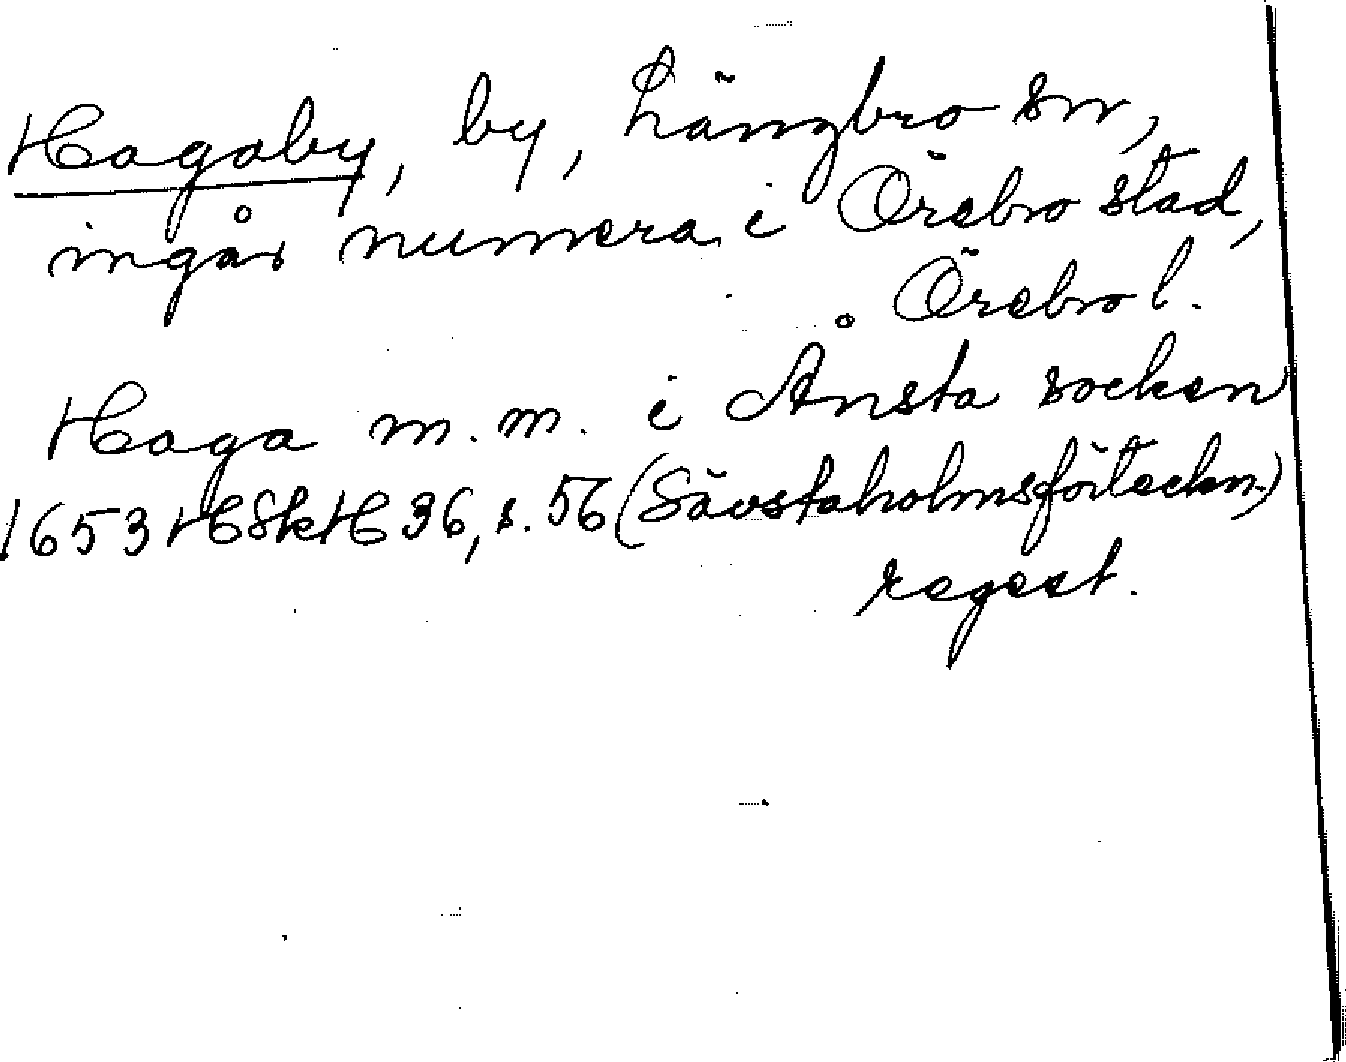 Hagaby, by, Längbro sn,
ingår numera i Örebro stad,
Örebro l.
Haga m.m. i Ånsta socken
1653 HSkH 36, s. 56 (Sävstaholmsförteckn.)
regest.